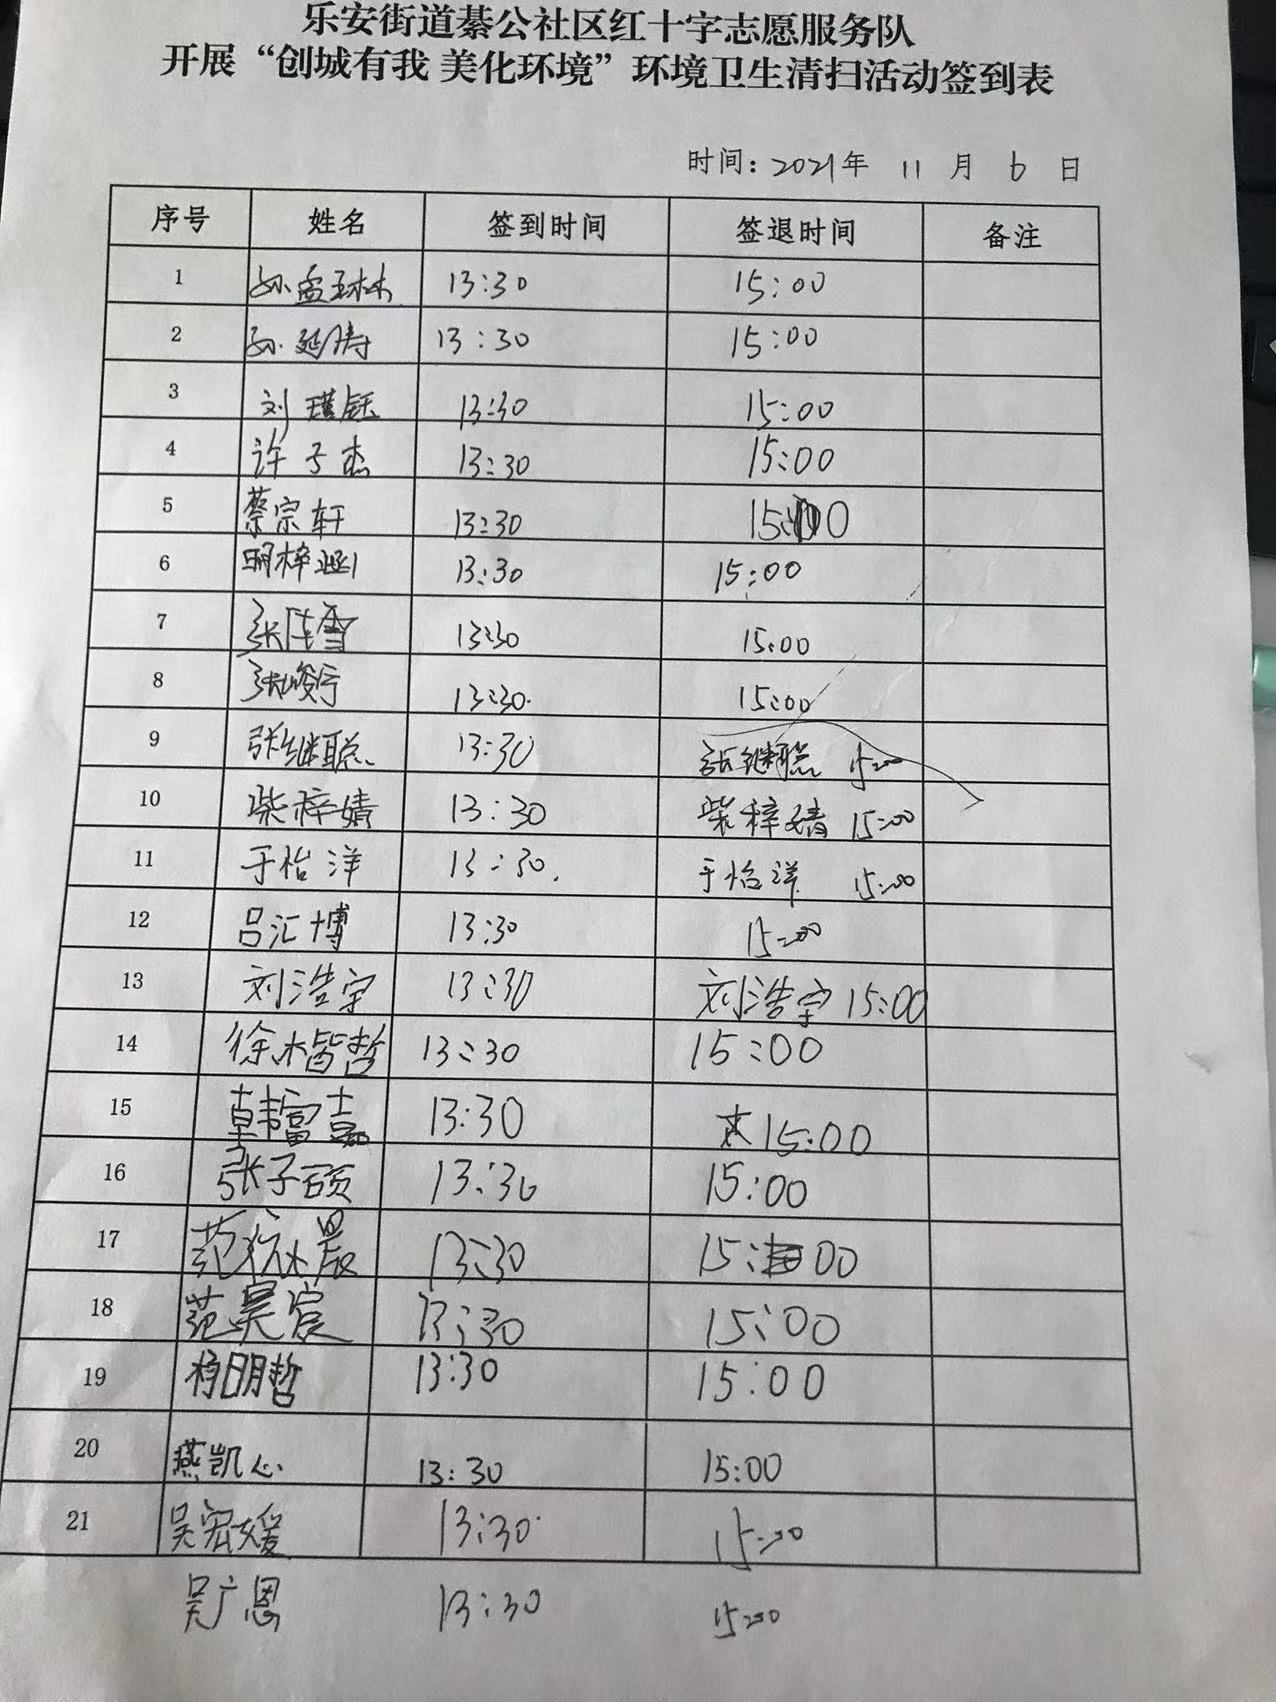 乐安街道綦公社区红十字志愿服务队
开展“创城有我 美化环境”环境卫生清扫活动签到表
时间：2021年 11 月 6 日
序号 姓名 签到时间 签退时间 备注
1 孙孟琳 13:30 15:00
2 孙延涛 13:30 15:00
3 刘瑾钰 13:30 15:00
4 许子杰 13:30 15:00
5 蔡宗轩 13:30 15:00
6 明梓涵 13:30 15:00
7 13:30 15:00
8 张峻宁 13:30 15:00
9 张继聪 13:30 张继聪 15:00
10 柴梓婧 13:30 柴梓婧 15:00
11 于怡洋 13:30 于怡洋 15:00
12 吕汇博 13:30 15:00
13 刘浩宇 13:30 刘浩宇 15:00
14 徐木智哲 13:30 15:00
15 韩富嘉 13:30 15:00
16 张子硕 13:30 15:00
17 13:30 15:00
18 范昊宸 13:30 15:00
19 杨明哲 13:30 15:00
20 燕凯心 13:30 15:00
21 吴宏媛 13:30 15:00
吴广恩 13:30 15:00